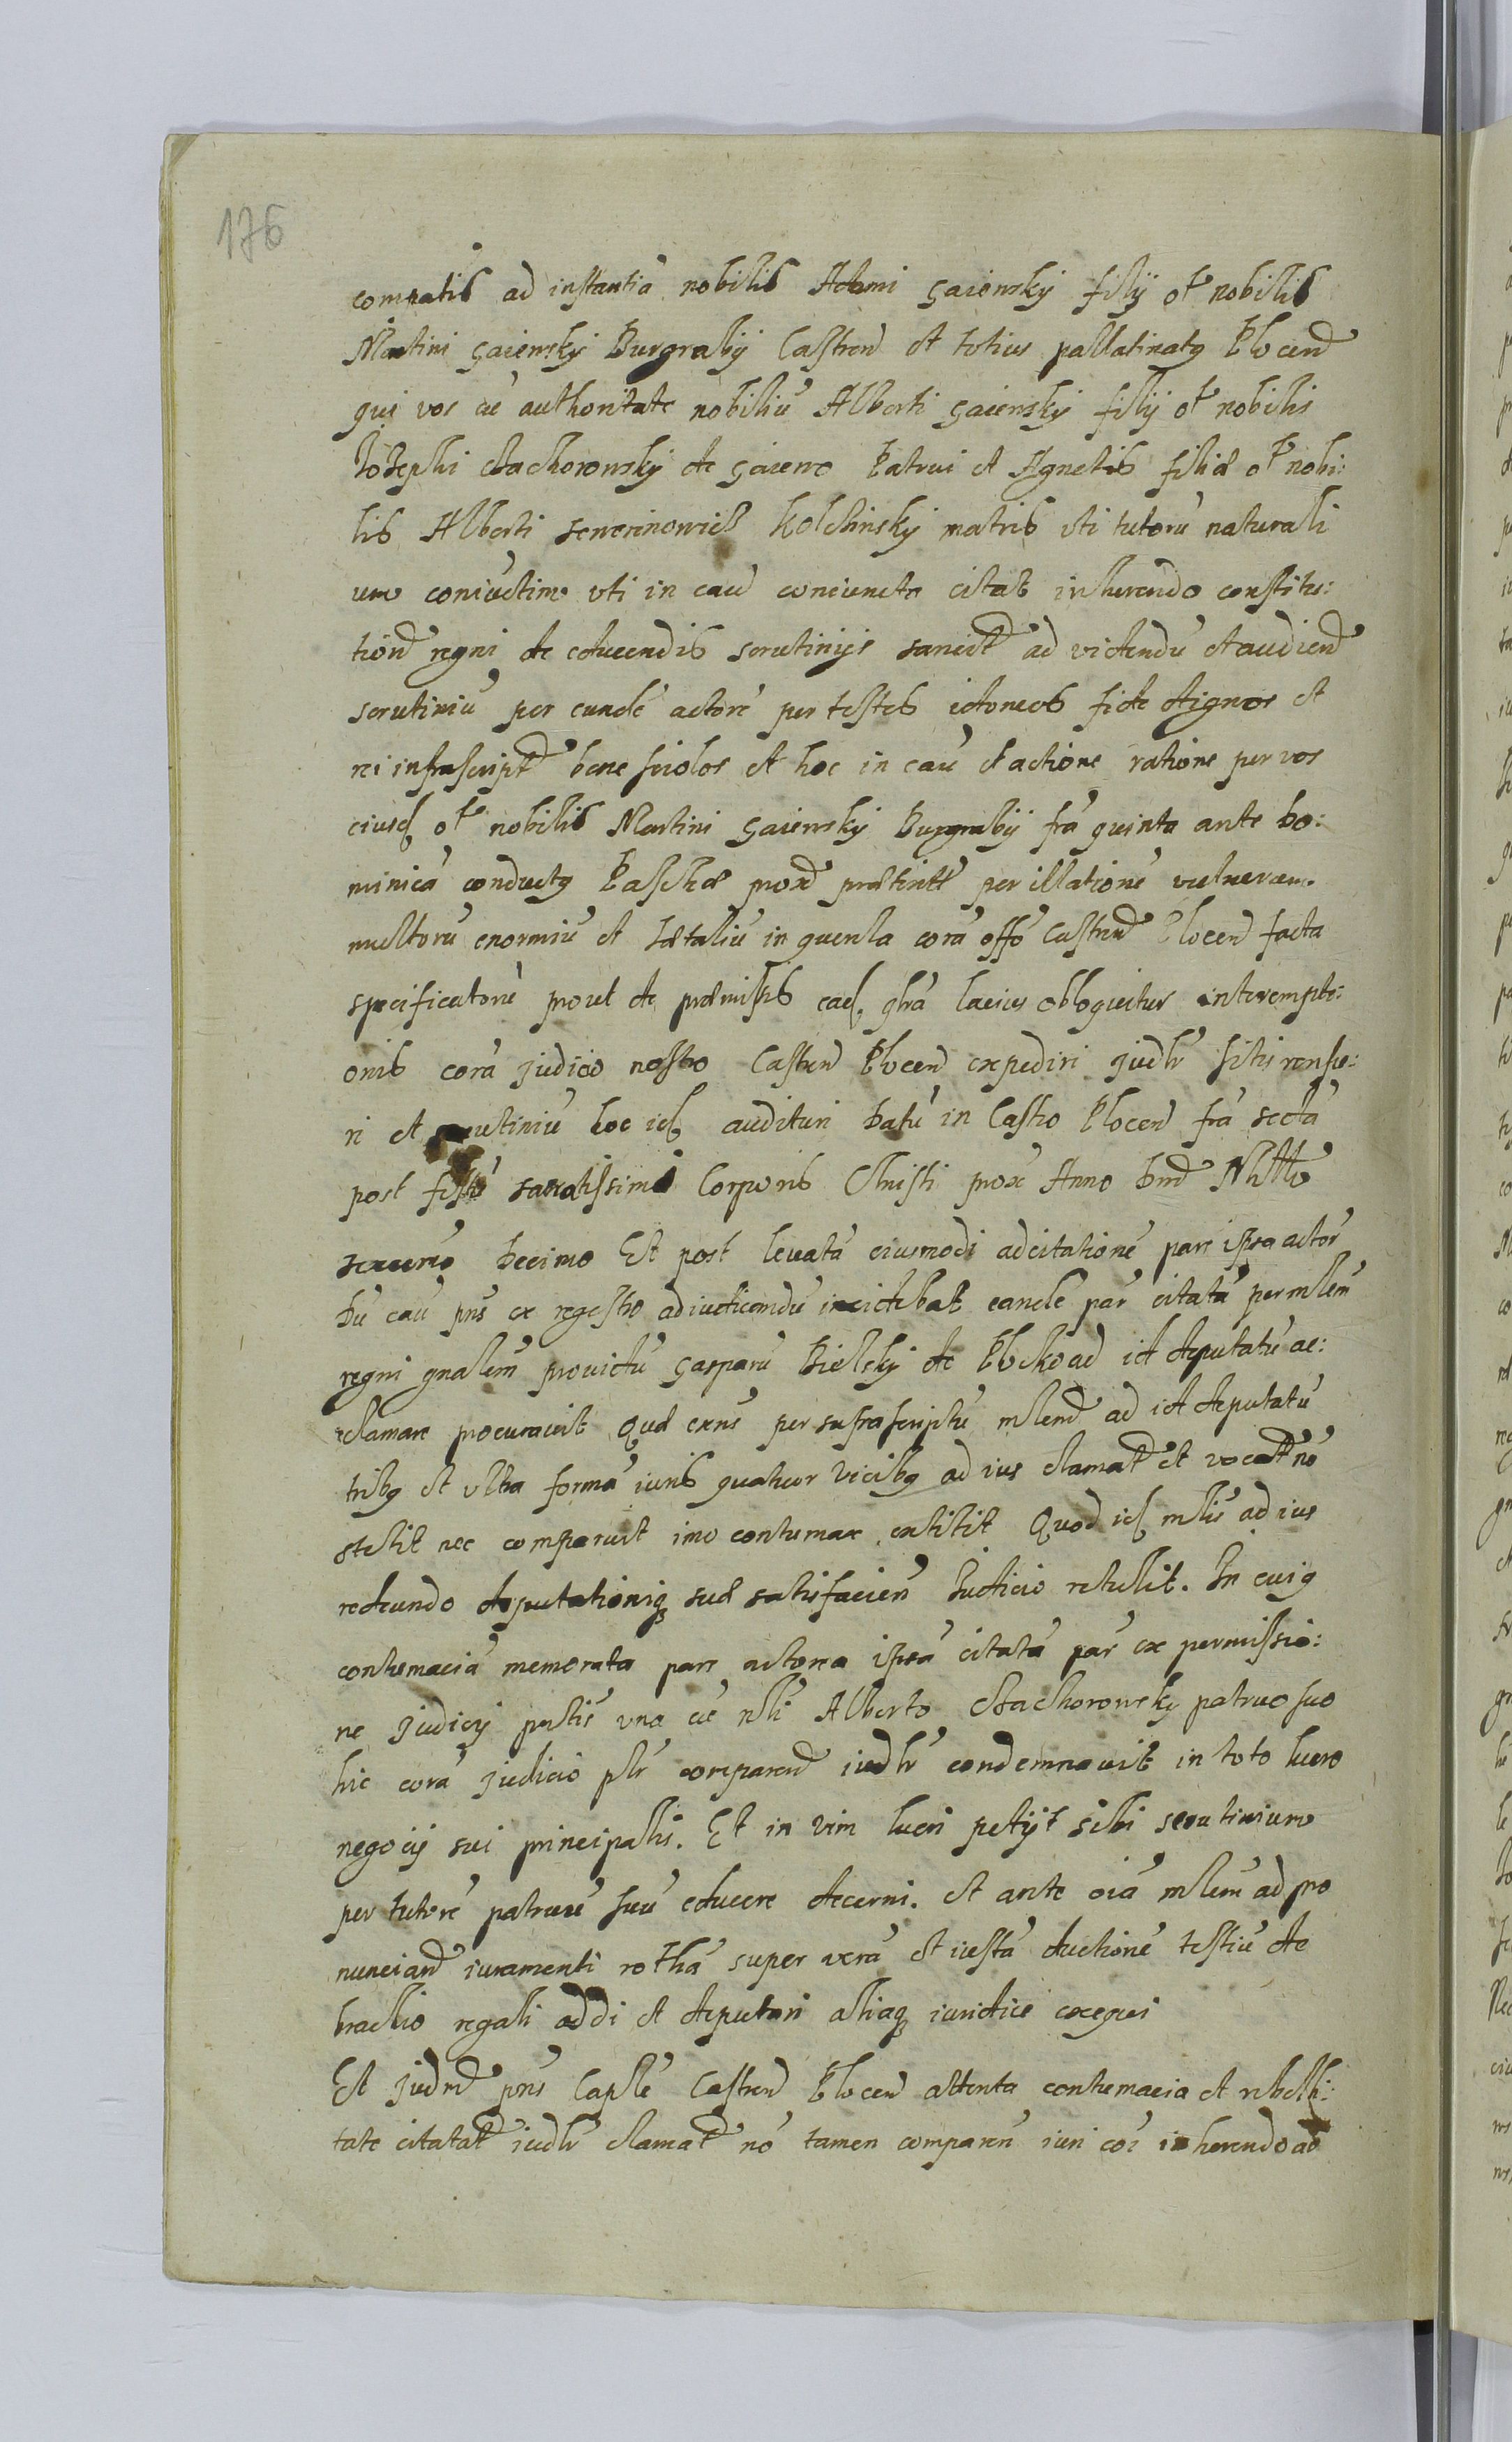 176
comratis ad instantiā nobilis Adami Gaiewsky filij ol nobilis
Martini Gaiewsky Burgrabij Castren et totius pallatinatq Plocen
qui vos cū authoritate nobiliū Alberti Gaiewsky filij ol nobilis
Josephi Stachorowsky de Gaiewo Patrui et Agnetis filiæ ol nobi:
lis Alberti Sewerinowicz Kolchinsky matris uti tutorū naturali
um coniūctim uti in cau coniuncta citat inhærendo constitu:
tiōn regni de educendis scrutinijs sancit ad videndū et audien
scrutiniū per eundē actorē per testes idoneos fide dignos et
rei infrascript bene sciolos et hoc in cau et actione ratione per vos
eiusd ol nobilis Martini Gaiewsky Burgrabij frā quinta ante Do:
minicā conductq Paschæ prox præterit per illationē vulnerum
multorū enormiū et lætaliū in querela corā offō Castren Plocen facta
specificatorū prout de præmissis ead. qlrā lacius obloquitur interempti:
onis corā judicio nostro Castren Plocen expediri judlr sitis respū:
ri et scrutiniū hoc id audituri Datū in Castro Plocen frā sectā
post festū sacratissimi Corporis Christi prox Anno Dni Millo
sexcmo Decimo Et post levatā eiusmodi adcitationē pars ipsa actor
Dū cau pns ex regestro adiudicandū incidebat eandē par citatā per mlēm
regni gnalēm prouidū Gasparū Bielsky de Plocko ad id deputatū ac:
clamare procurauit Quæ exns per suprascriptū mlem ad id deputatū
tribq et ultra formā iuris quatuor vicibq ad ius clamat et vocat nō
stetit nec comparuit imo contumax extitit Quod id mlis ad ius
redeundo deputationiq suæ satisfacien Judicio retulit. In cuiq
contumaciā memorata pars actorea ipsā citatā par ex permissio:
ne Judicij pntis una cū nli Alberto Stachorowsky patruo suo
hic corā judicio plr comparen iudlr condemnauit in toto lucro
negocij sui principalis. Et in vim lucri petijt sibi scrutinium
per tutorē patruū suū educere decerni. et ante oiā mlēm ad pro
nunciand iuramenti rothā super verā et iustā ductionē testiū de
brachio regali addi et deputari aliaq iuridice exequi
Et judm pns Caplē Castren Plocen attenta contumacia et rebelli:
tate citatæ iudlr clamat nō tamen comparen iuri cōi inherendo ad